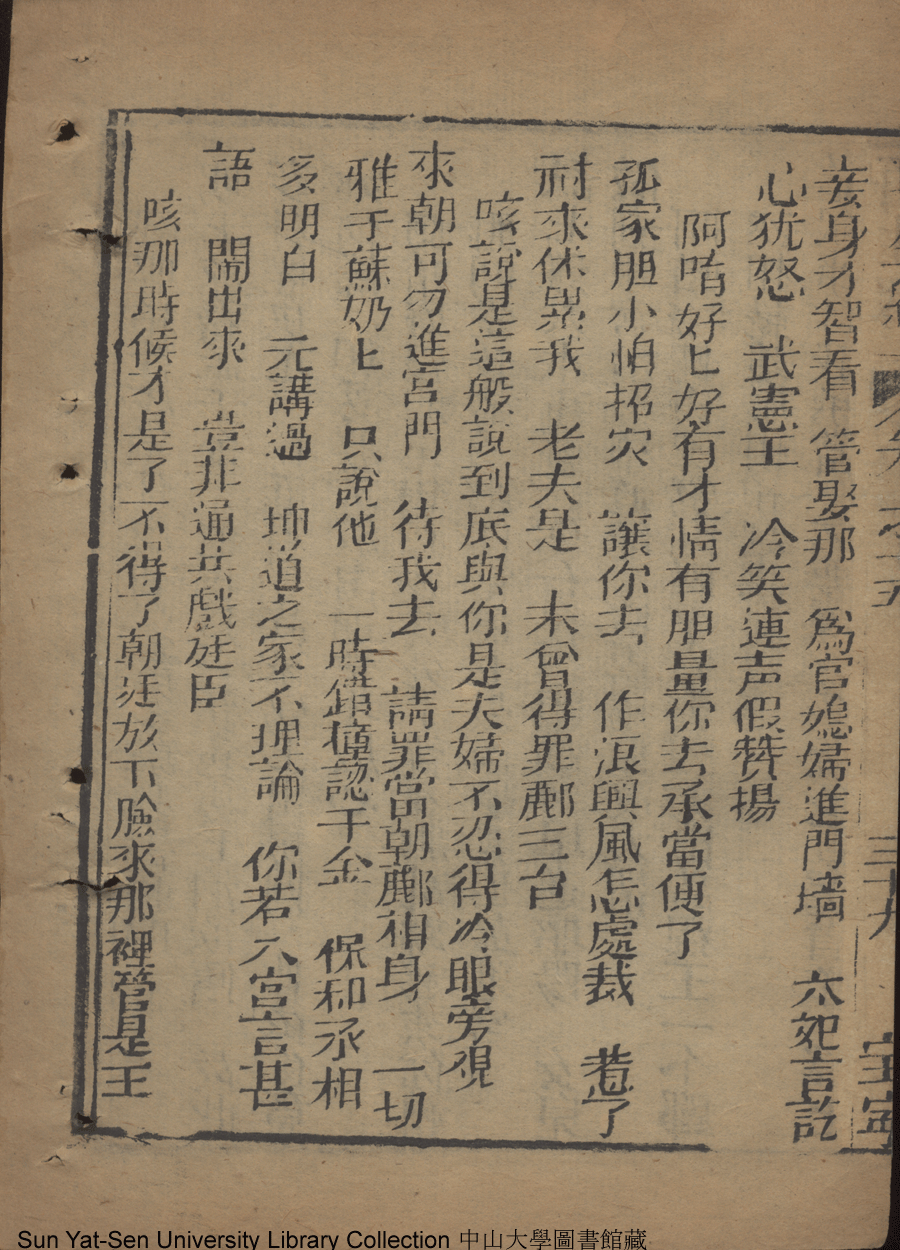 三十九
妾身才智看　管娶那　為官媳婦進門墙　太妃言訖
心犹怒　武憲王　冷笑連声假贊揚
阿唷好匕好有才情有胆量你去承當便了
孤家胆小怕招灾　讓你去　作浪興風怎處裁　惹了
禍來休累我　老夫是　未曾得罪酈三台
咳說是這般說到底與你是夫婦不忍得冷眼旁視
來朝可勿進宮門　待我去　請罪當朝酈相身　一切
雅于蘇奶匕　只說他　一時錯撞認千金　保和丞相
多明白　元講過　坤道之家不理論　你若入宮言甚
語　鬧出來　豈非通共戲廷臣
咳那時候才是了不得了朝廷放下臉來那裡管是王
Sun Yat-Sen University Library Collection 中山大學圖書館藏